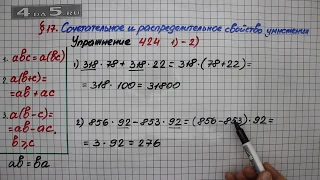 4APDA5.RU
§17. Сочетательное и распределительное свойство умножения
Упражнение 424 1)-2)
1. abc = a(bc)
2. a(b+c)=
=ab+ac
3. a(b-c)=
=ab-ac,
b>c
ab=ba
1) 318·78+318·22=318·(78+22)=
=318·100=31800
2) 856·92-853·92=(856-853)·92=
=3·92=276